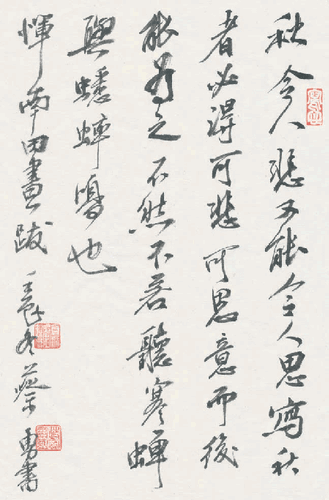 秋令人悲又能令人思寫秋
者必得可悲可思意而後
能為之不然不若聽寒蟬
與蟋蟀鳴也
惲南田畫跋 冬 勇書